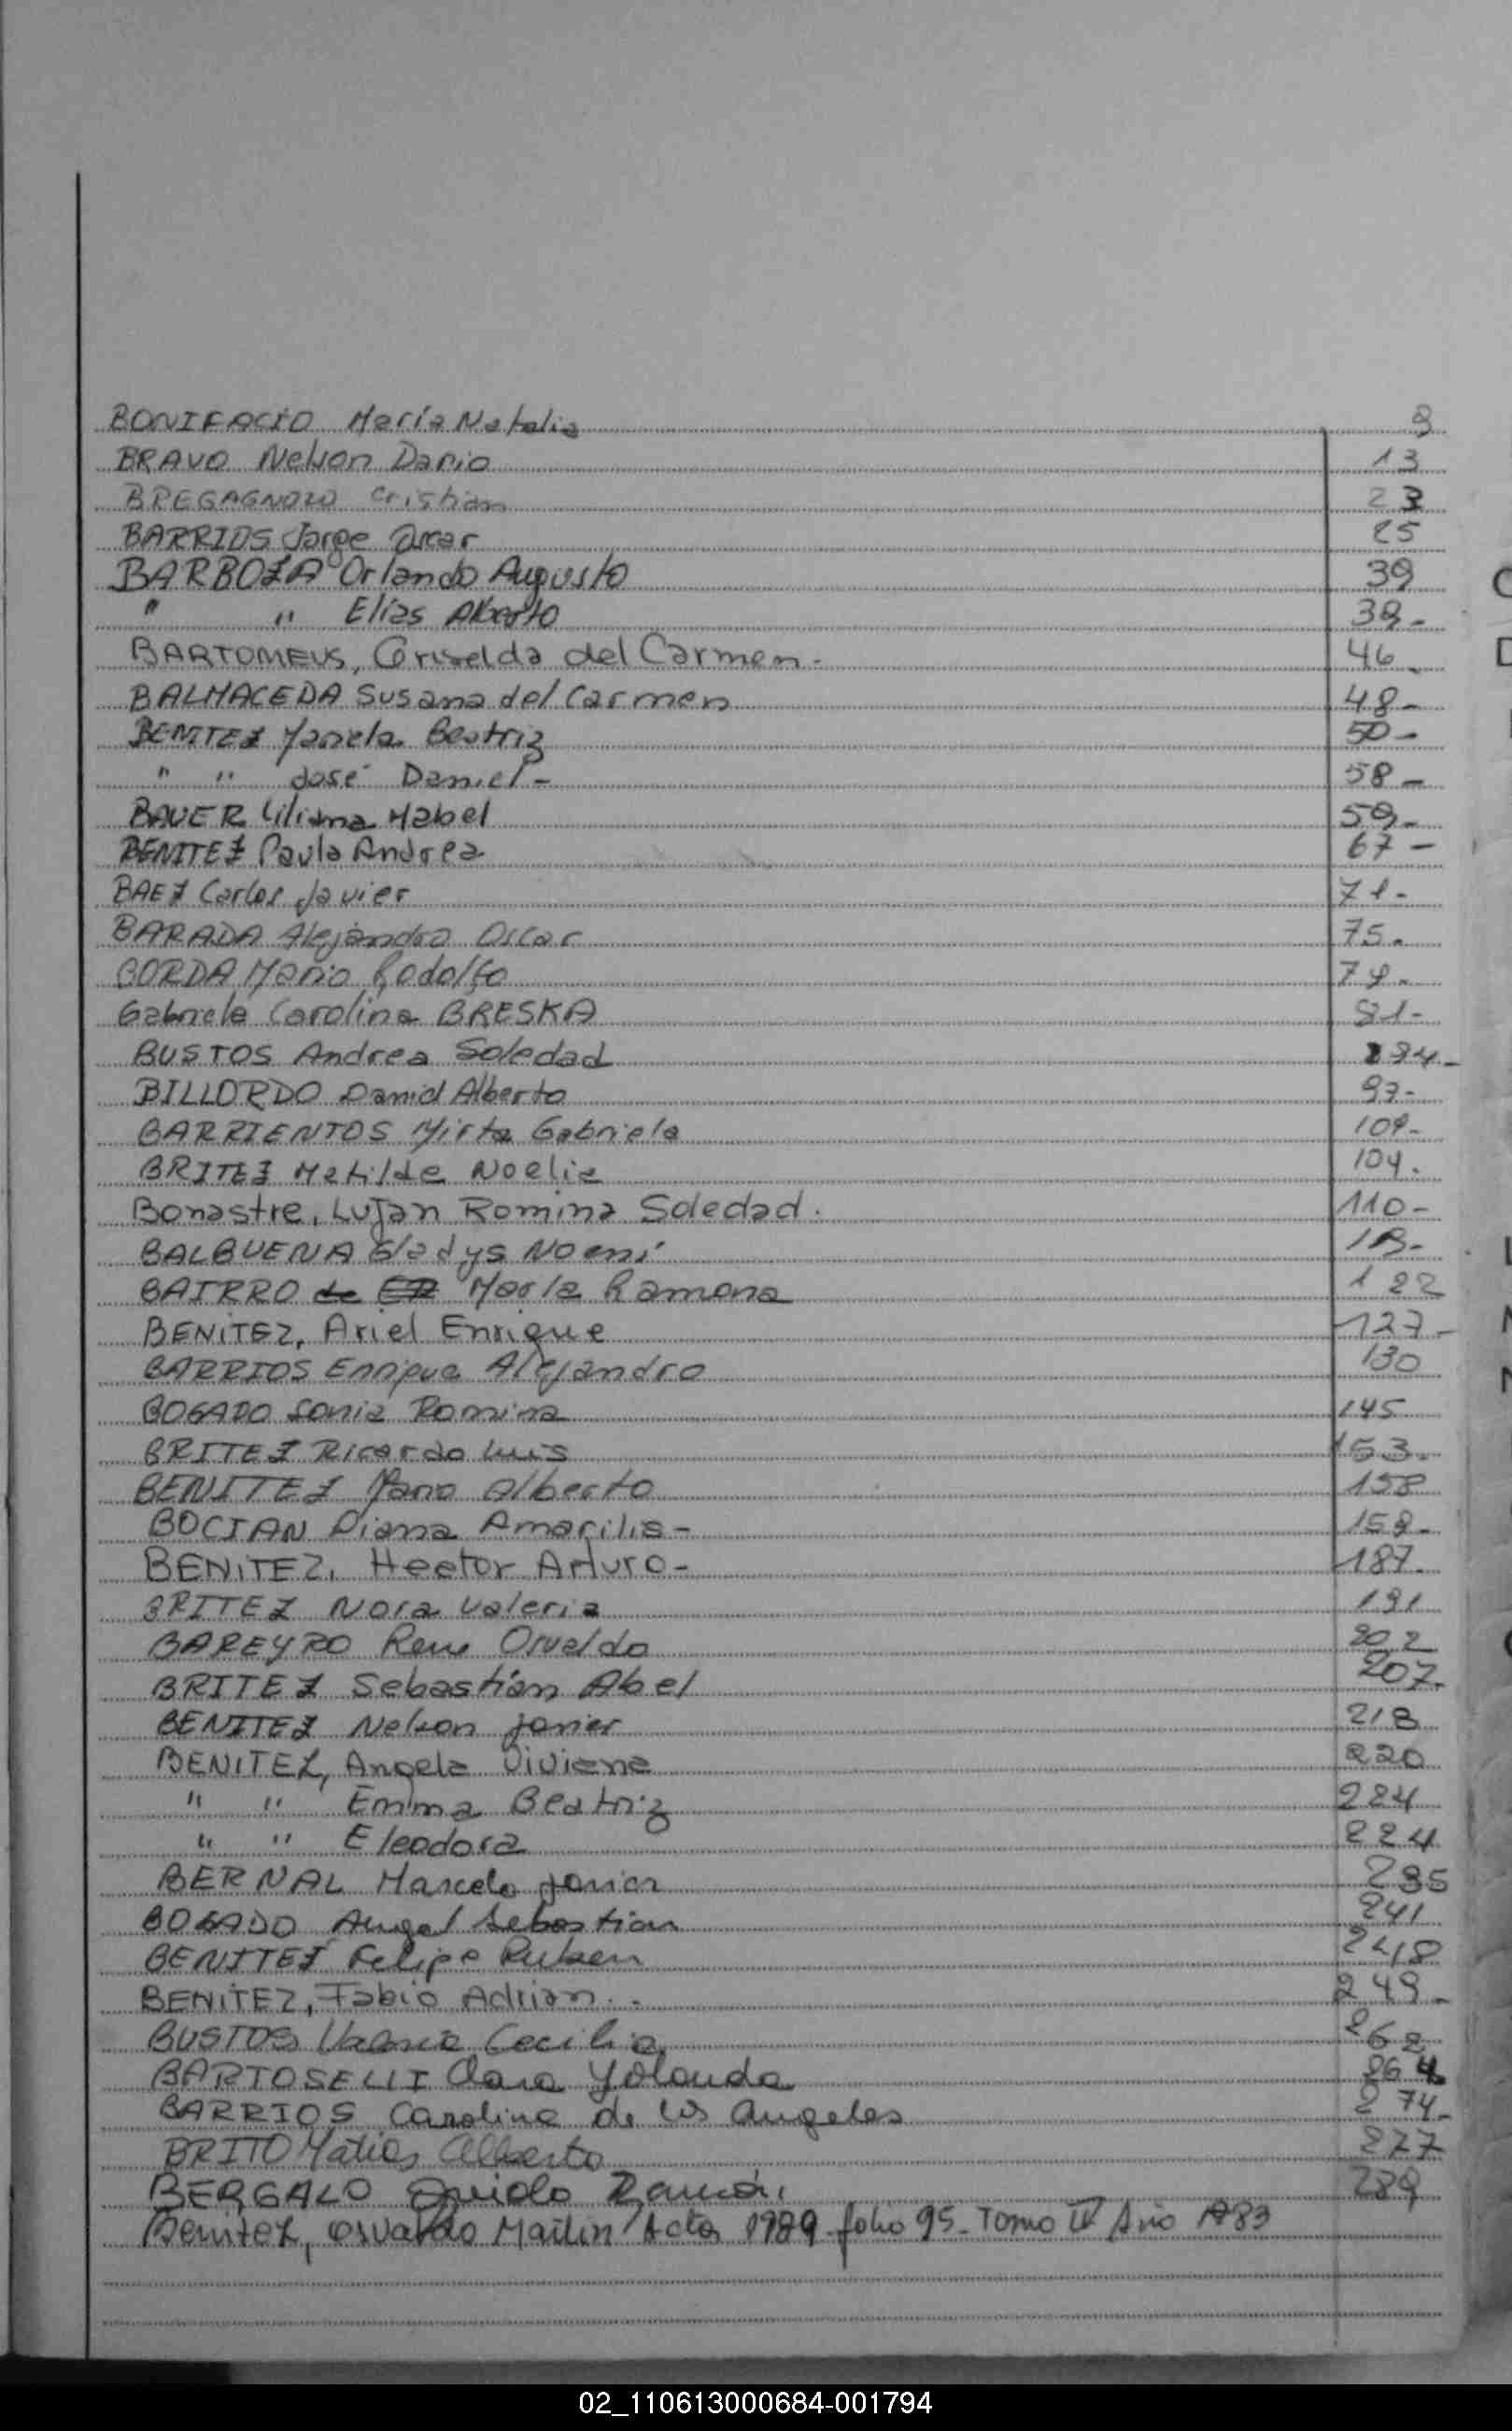 BONIFACIO María Natalia 9
BRAVO Nelson Dario 13
BREGAGNOLO Cristian 23
BARRIOS Jorge Oscar 25
BARBOZA Orlando Augusto 39
" " Elías Alberto 39-
BARTOMEUS, Griselda del Carmen- 46
BALMACEDA Susana del Carmen 48-
BENITEZ Yanela Beatriz 50-
" " José Daniel- 58-
BAUER Liliana Mabel 59-
BENITEZ Paula Andrea 67-
BAEZ Carlos Javier 71-
BARADA Alejandro Oscar 75.
BORDA Mario Rodolfo
Gabriela Carolina BRESKA
BUSTOS Andrea Soledad
BILLORDO Daniel Alberto
BARRIENTOS Mirta Gabriela
BRITEZ Matilde Noelia 104.
Bonastre, Lujan Romina Soledad. 110-
BALBUENA Gladys Noemí
BAIRRO de María Ramona 122
BENITEZ, Ariel Enrique 127-
BARRIOS Enrique Alejandro 130
BOGADO Sonia Romina 145
BRITEZ Ricardo Luis 153.
BENITEZ Mario Alberto 158
BOCIAN Diana Amarilis- 159-
BENITEZ, Hector Arturo- 187.
BRITEZ Nora Valeria 191
BAREYRO Rene Osvaldo 202
BRITEZ Sebastián Abel 207.
BENITEZ Nelson Javier 218
BENITEZ, Angela Viviana 220
" " Emma Beatriz 224
" " Eleodora 224
BERNAL Marcelo Javier 235
BOGADO Angel Sebastian 241
BENITEZ Felipe Ruben 248
BENITEZ, Fabio Adrian.. 249-
BUSTOS Cecilia 262
BARTOSELLI Clara Yolanda 264
BARRIOS Carolina de los Angeles 274-
BRITO Matias Alberto 277
BERGALO Ramón 289
Benitez, Osvaldo Martin Acta 1989 folio 95- Tomo IV Año 1983
02_110613000684-001794